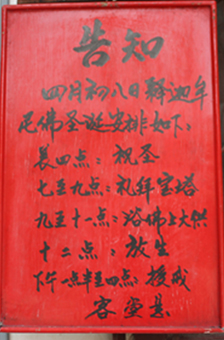 告知
四月初八日释迦牟
尼佛圣诞安排如下：
晨四点：祝圣
七至九点：礼拜宝塔
九至十一点：浴佛上大供
十二点：放生
下午一点半至四点：授戒
客堂具